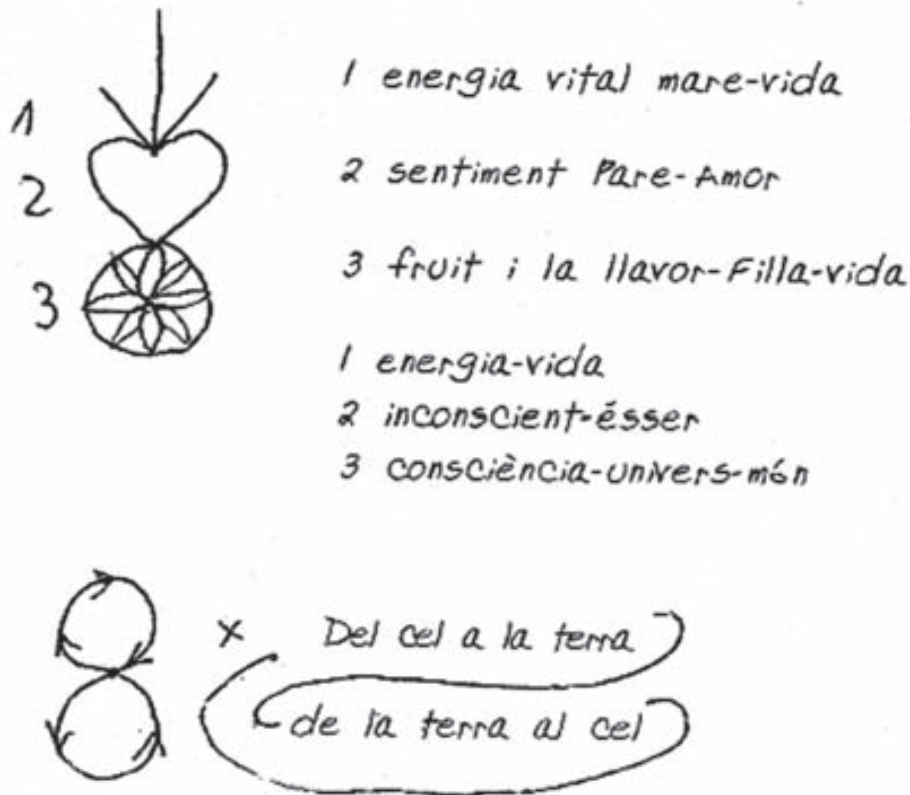 1
2
3
1 energia vital mare-vida
2 sentiment Pare-Amor
3 fruit i la llavor-Filla-vida
1 energia-vida
2 inconscient-ésser
3 consciència-univers-món
x Del cel a la terra
de la terra al cel